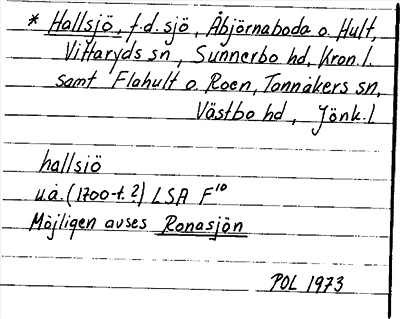 * Hallsjö, f.d. sjö, Åbjörnaboda o. Hult,
Vittaryds sn, Sunnerbo hd, Kron. l.
samt Flahult o. Roen, Tannåkers sn,
Västbo hd, Jönk. l
hallsiö
u.å. (1700-t. ?) LSA F¹⁰
Möjligen avses Ronasjön
POL 1973